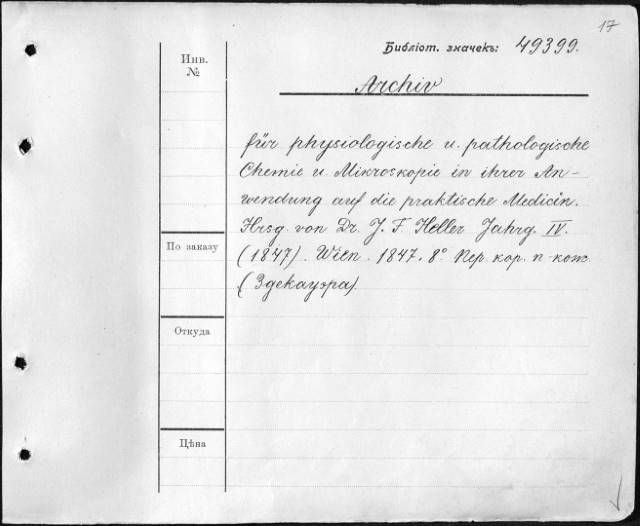 17
Библіот. значекъ: 49399.
Archiv
Инв.
№
für physiologische u. pathologische
Chemie u. Mikroskopie in ihrer An-
wendung auf die praktische Medicin.
Hrsg. von Dr. J. F. Heller Jahrg. IV.
(1847). Wien. 1847. 8° Пер. кор. п-кож
(Здекауэра)
По заказу
Откуда
Цѣна